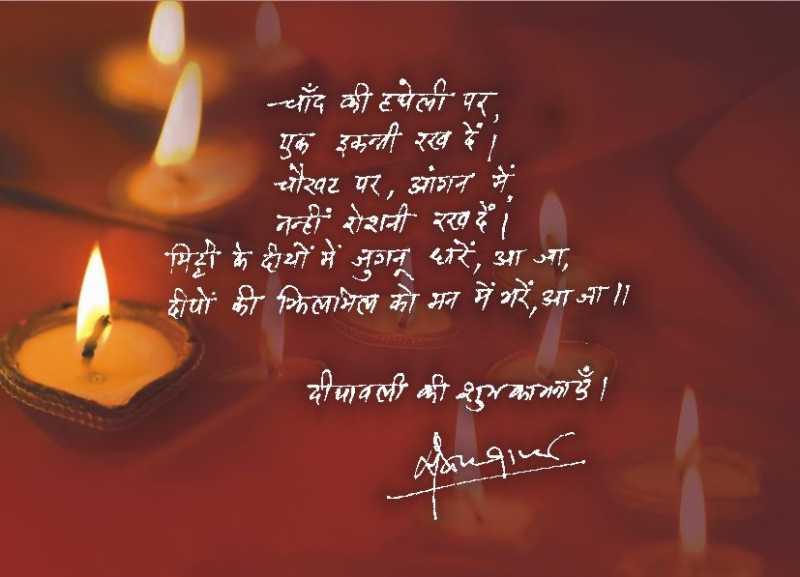 चाँद की हथेली पर,
एक इकन्नी रख दें।
चौखट पर, आंगन में
नन्हीं रोशनी रख दें।
मिट्टी के दीयों में जुगनू धरें, आ जा,
दीपों की झिलमिल को मन में भरें, आ जा॥
दीपावली की शुभकामनाएँ।